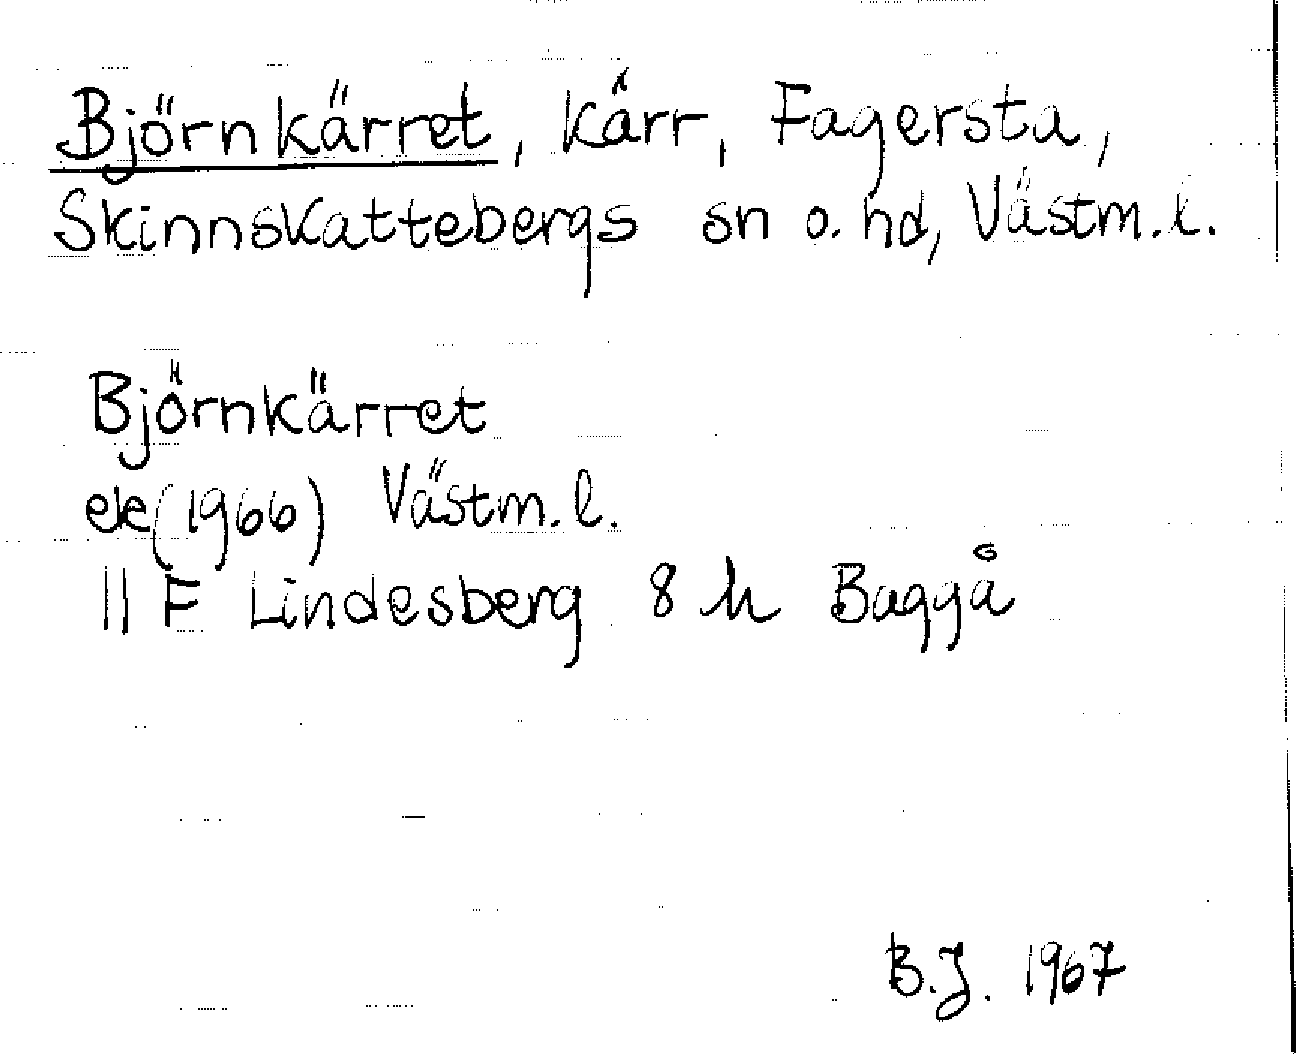 Björnkärret, kärr, Fagersta,
Skinnskattebergs sn o. hd, Västm. l.
Björnkärret
ek (1966) Västm. l.
11 F Lindesberg 8 h Baggå
B.J. 1967